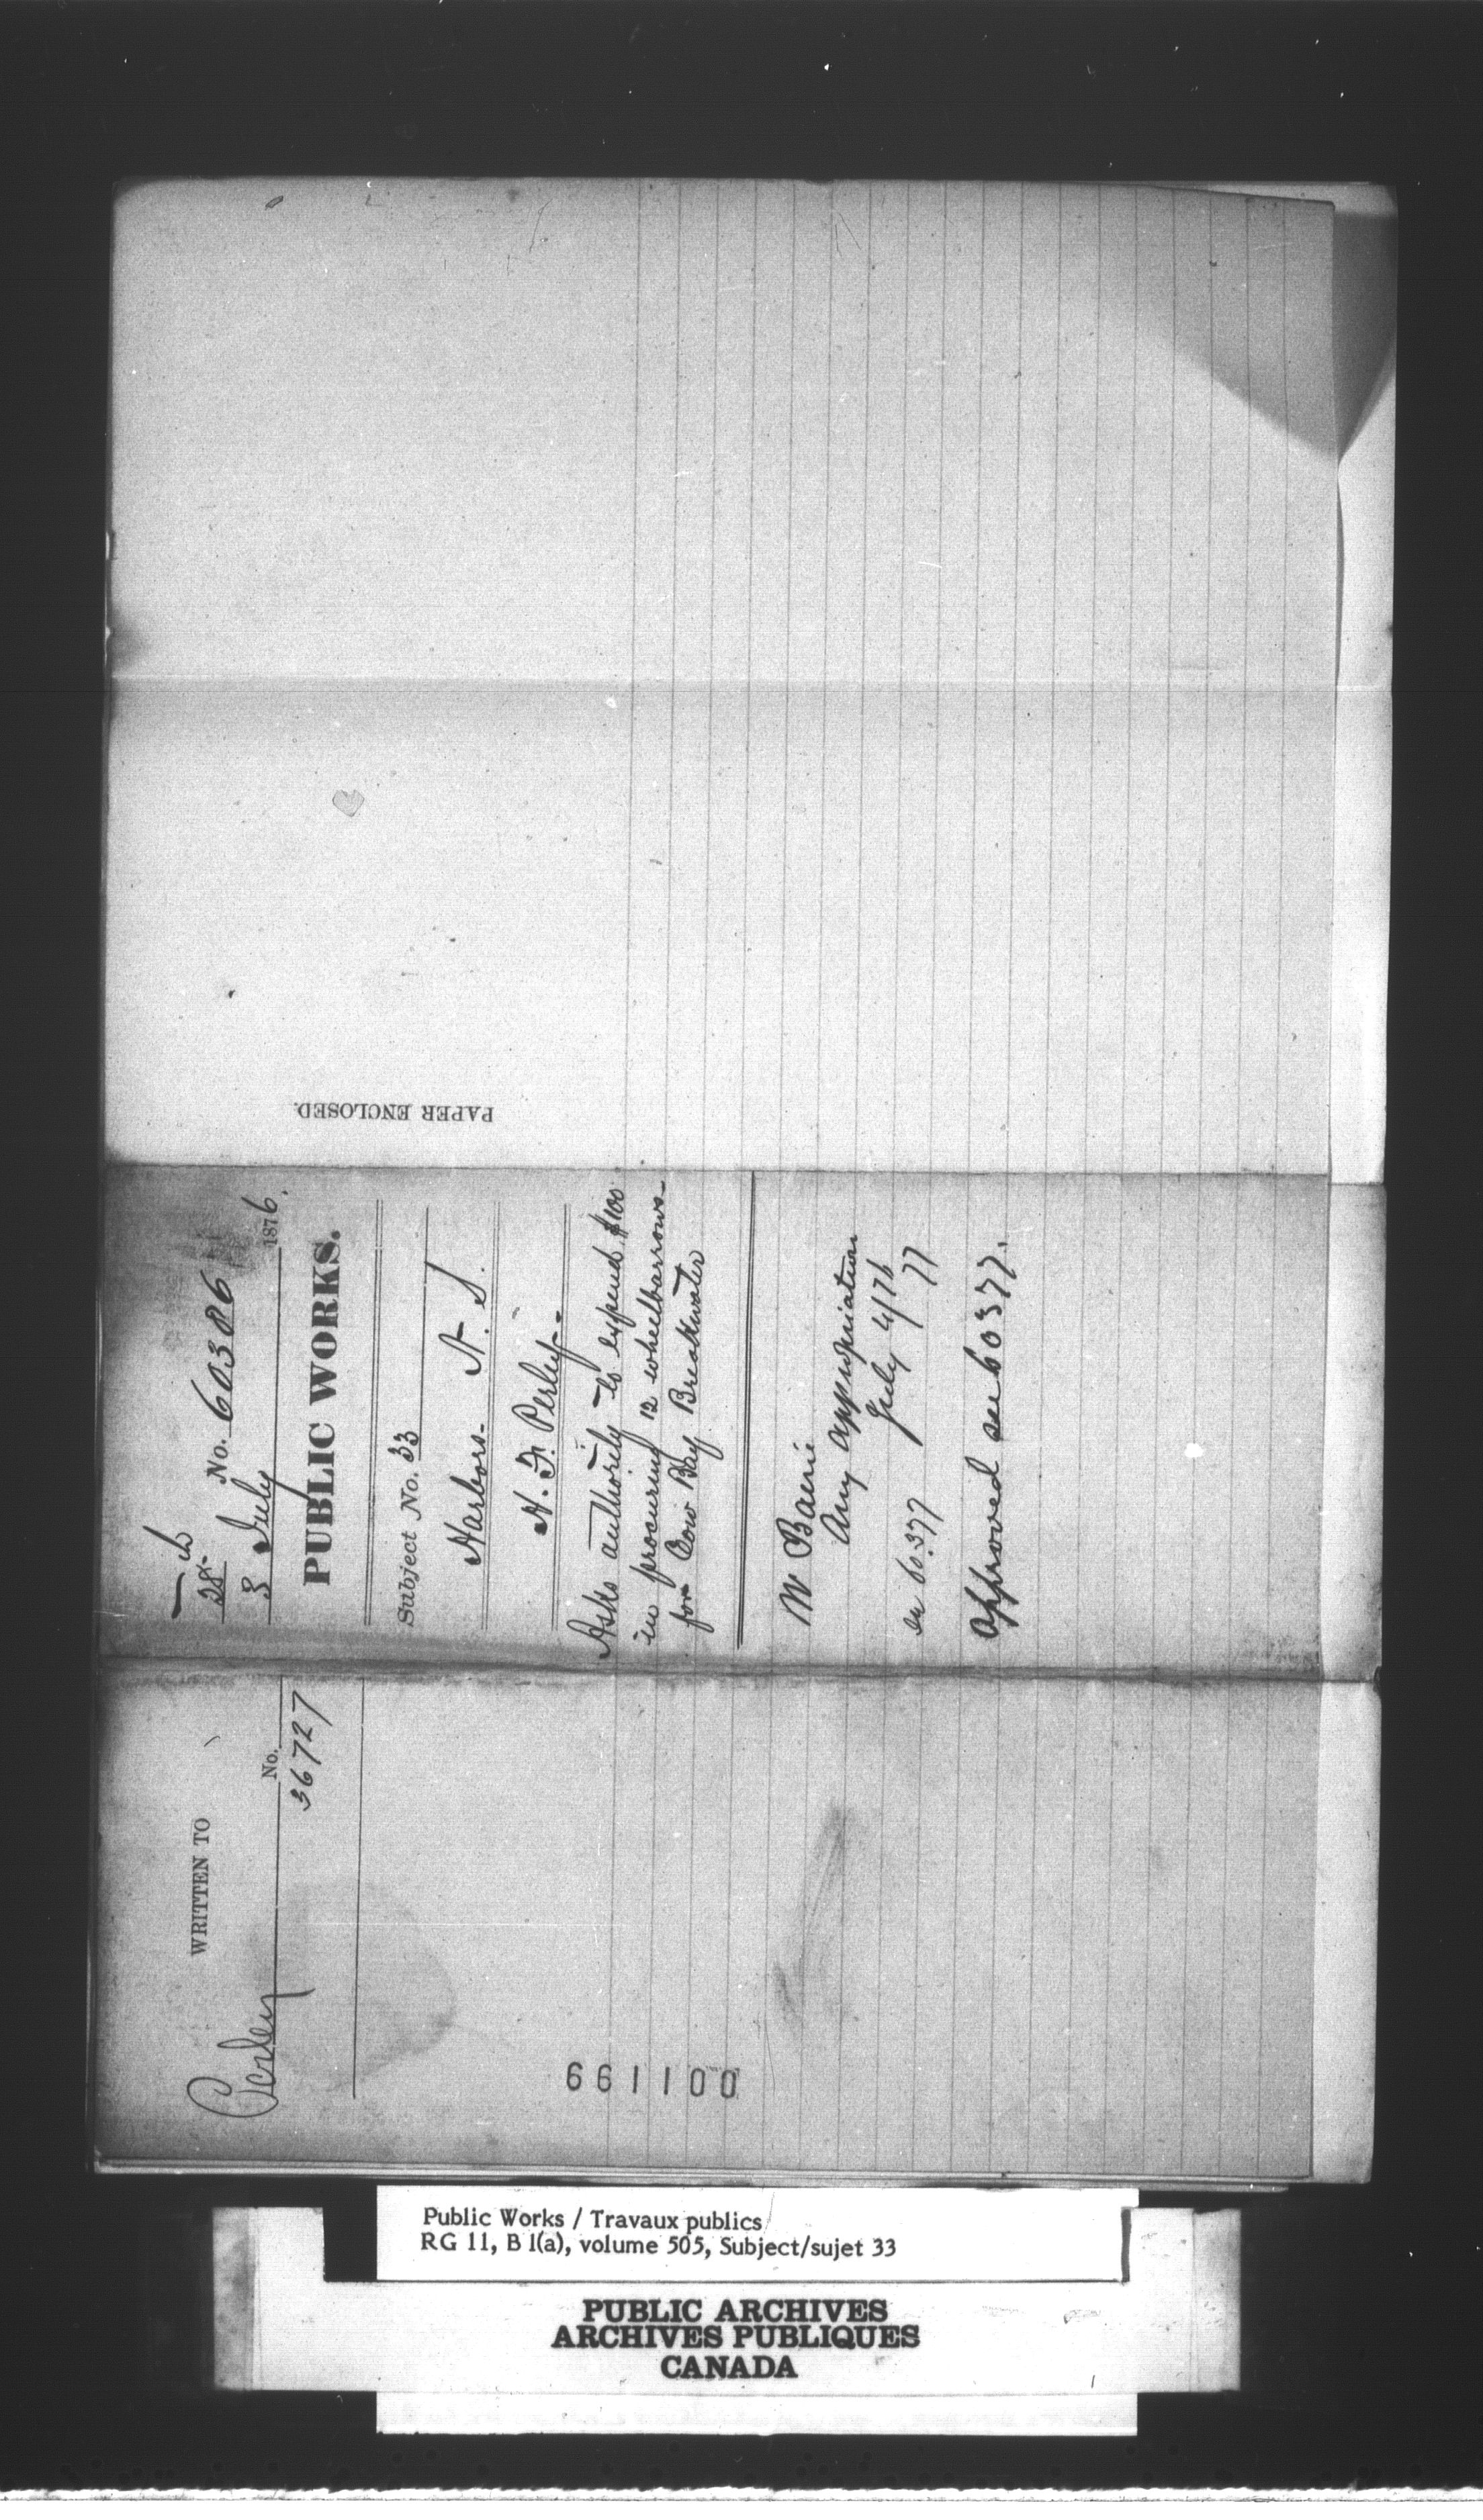 28
No. 60386
3 July 1876.
PUBLIC WORKS.
Subject No. 33
Harbors- N. S.
H. F. Perley-
Asks authority to expend $100
in procuring 12 wheelbarrows-
for Cow Bay Breakwater
Any appropriation
July 4/76
60.377
Approved see 60377.
PAPER ENCLOSED.
WRITTEN TO
Perley No.
36727
661100
Public Works / Travaux publics
RG 11, B 1(a), volume 505, Subject/sujet 33
PUBLIC ARCHIVES
ARCHIVES PUBLIQUES
CANADA